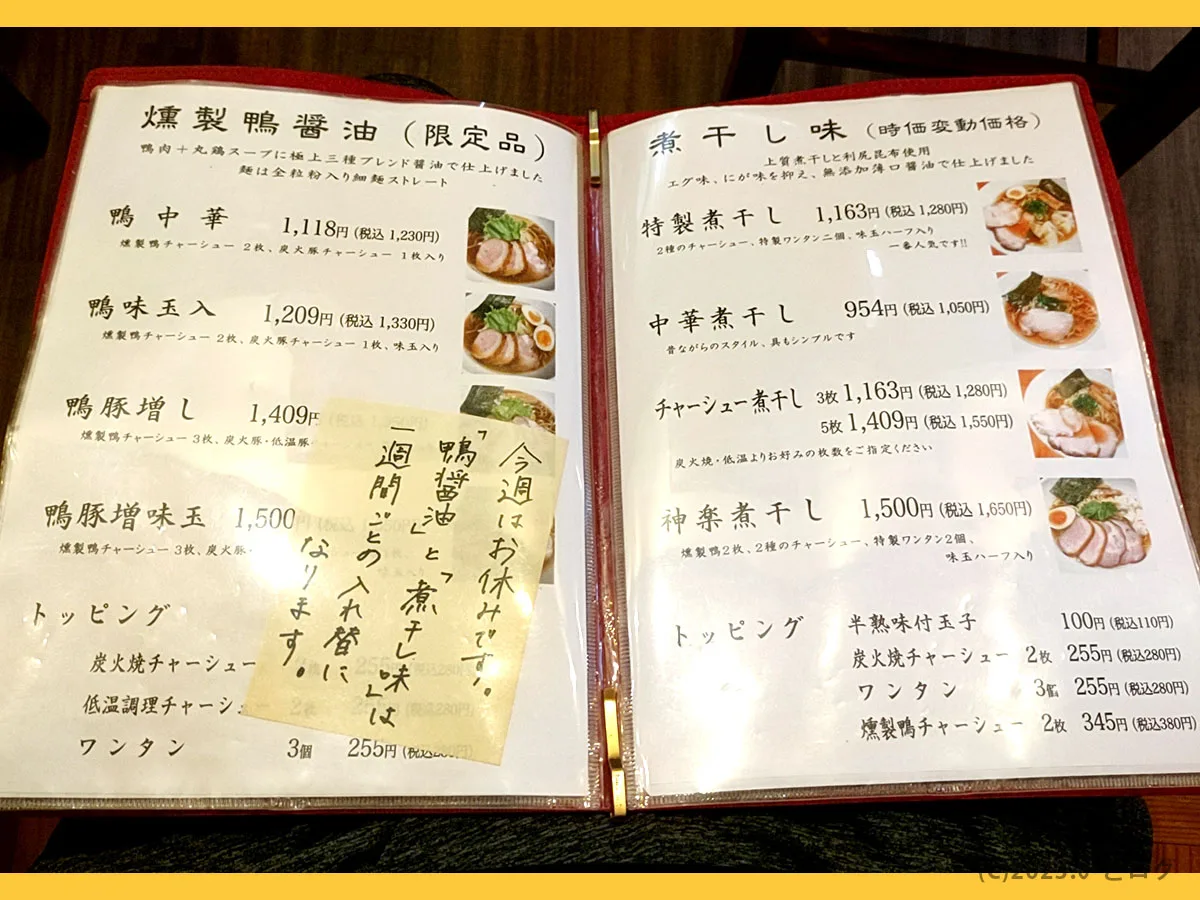 燻製鴨醤油（限定品）
鴨肉＋丸鶏スープに極上三種ブレンド醤油で仕上げました
麺は全粒粉入り細麺ストレート
鴨中華 1,118円（税込 1,230円）
燻製鴨チャーシュー 2枚、炭火豚チャーシュー 1枚入り
鴨味玉入 1,209円（税込 1,330円）
燻製鴨チャーシュー 2枚、炭火豚チャーシュー 1枚、味玉入り
鴨豚増し 1,409円
燻製鴨チャーシュー 3枚、炭火豚・低温豚
鴨豚増味玉 1,500
燻製鴨チャーシュー 3枚、炭火豚・
トッピング
炭火焼チャーシュー
低温調理チャーシュー
ワンタン 3個 255円（税込280円）
今週はお休みです。
「鴨醤油」と「煮干し味」は
一週間ごとの入れ替に
なります。
煮干し味（時価変動価格）
上質煮干しと利尻昆布使用
エグ味、にが味を抑え、無添加薄口醤油で仕上げました
特製煮干し 1,163円（税込 1,280円）
2種のチャーシュー、特製ワンタン二個、味玉ハーフ入り
一番人気です!!
中華煮干し 954円（税込 1,050円）
昔ながらのスタイル、具もシンプルです
チャーシュー煮干し 3枚 1,163円（税込 1,280円）
5枚 1,409円（税込 1,550円）
炭火焼・低温よりお好みの枚数をご指定ください
神楽煮干し 1,500円（税込 1,650円）
燻製鴨2枚、2種のチャーシュー、特製ワンタン2個、
味玉ハーフ入り
トッピング 半熟味付玉子 100円（税込110円）
炭火焼チャーシュー 2枚 255円（税込280円）
ワンタン 3個 255円（税込280円）
燻製鴨チャーシュー 2枚 345円（税込380円）